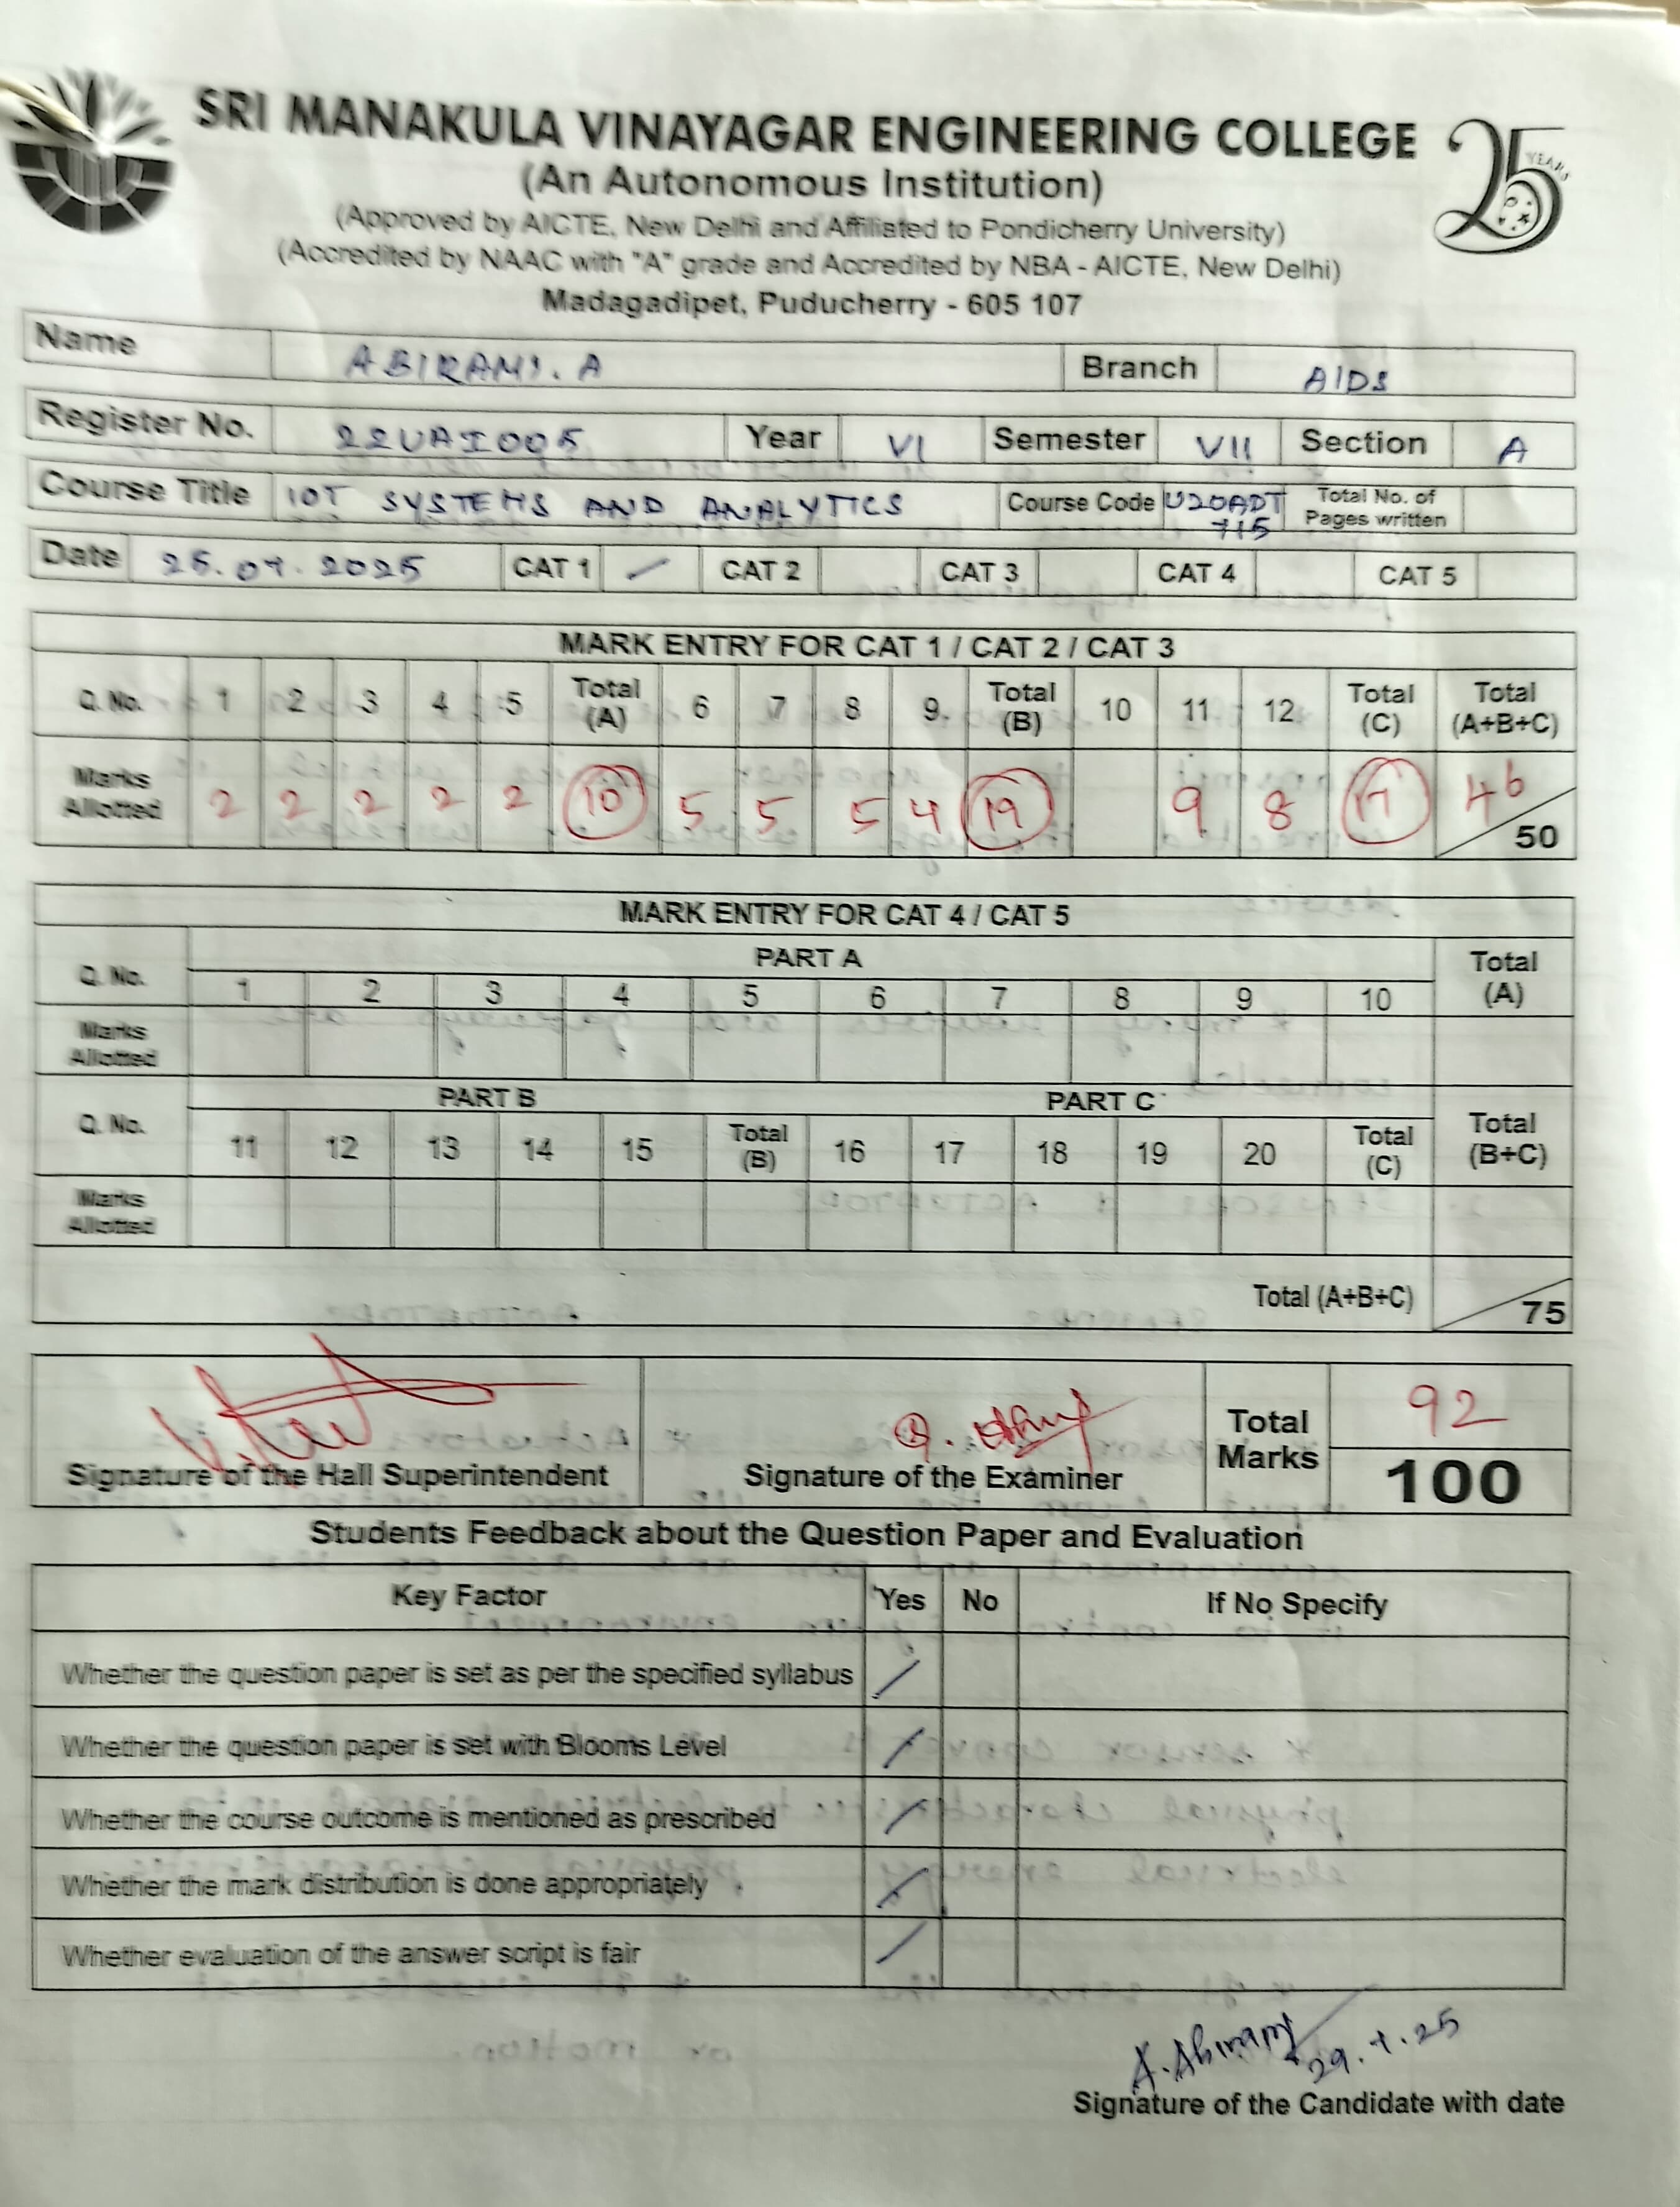 SRI MANAKULA VINAYAGAR ENGINEERING COLLEGE
25 YEARS
(An Autonomous Institution)
(Approved by AICTE, New Delhi and Affiliated to Pondicherry University)
(Accredited by NAAC with "A" grade and Accredited by NBA - AICTE, New Delhi)
Madagadipet, Puducherry - 605 107
Name ABIRAMI. A Branch AIDS
Register No. 22UAI005 Year VI Semester VII Section A
Course Title IOT SYSTEMS AND ANALYTICS Course Code U20ADT 715 Total No. of Pages written
Date 25.07.2025 CAT 1 / CAT 2 CAT 3 CAT 4 CAT 5
MARK ENTRY FOR CAT 1 / CAT 2 / CAT 3
Q. No. 1 2 3 4 5 Total (A) 6 7 8 9 Total (B) 10 11 12 Total (C) Total (A+B+C)
Marks Allotted 2 2 2 2 2 10 5 5 5 4 19 9 8 17 46/50
MARK ENTRY FOR CAT 4 / CAT 5
PART A
Q. No. 1 2 3 4 5 6 7 8 9 10 Total (A)
Marks Allotted
PART B PART C
Q. No. 11 12 13 14 15 Total (B) 16 17 18 19 20 Total (C) Total (B+C)
Marks Allotted
Total (A+B+C) /75
Signature of the Hall Superintendent Signature of the Examiner Total Marks 92 100
Students Feedback about the Question Paper and Evaluation
Key Factor Yes No If No Specify
Whether the question paper is set as per the specified syllabus /
Whether the question paper is set with Blooms Level /
Whether the course outcome is mentioned as prescribed /
Whether the mark distribution is done appropriately /
Whether evaluation of the answer script is fair /
A. Abirami 29.7.25
Signature of the Candidate with date